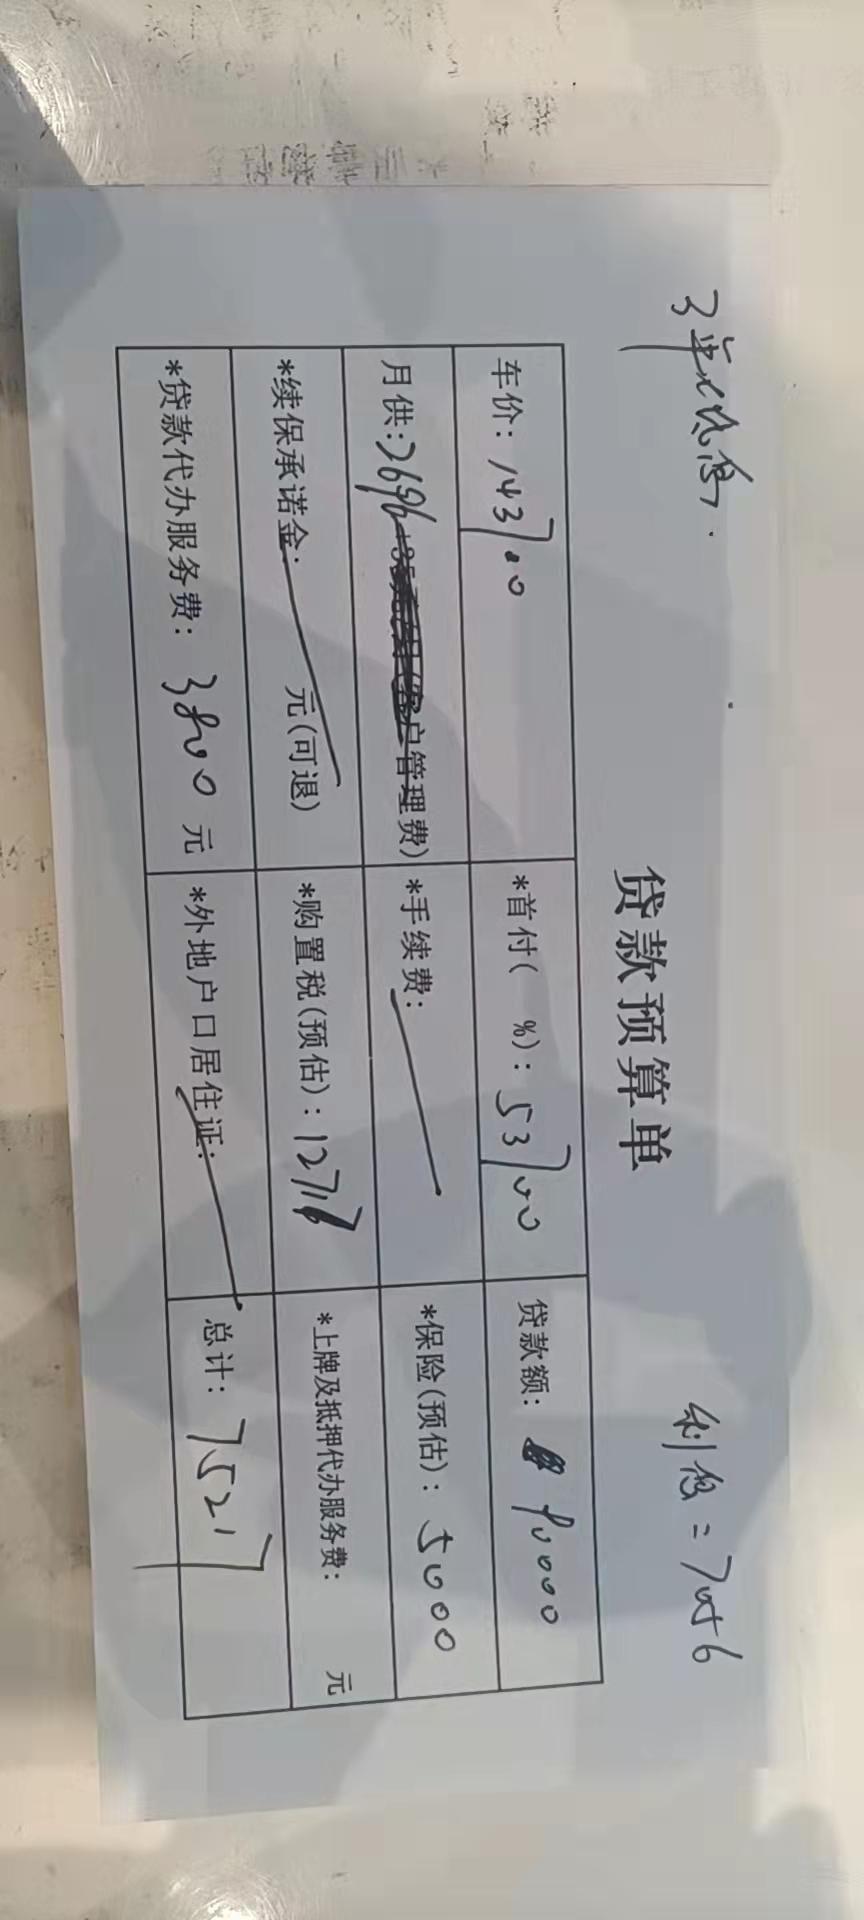 3年低息 利息=7056
贷款预算单
车价: 143700 *首付( %): 53700 贷款额: 90000
月供: 2696 管理费) *手续费: *保险(预估): 5000
*续保承诺金: 元(可退) *购置税(预估): 12717 *上牌及抵押代办服务费: 元
*贷款代办服务费: 3800 元 *外地户口居住证: 总计: 75217